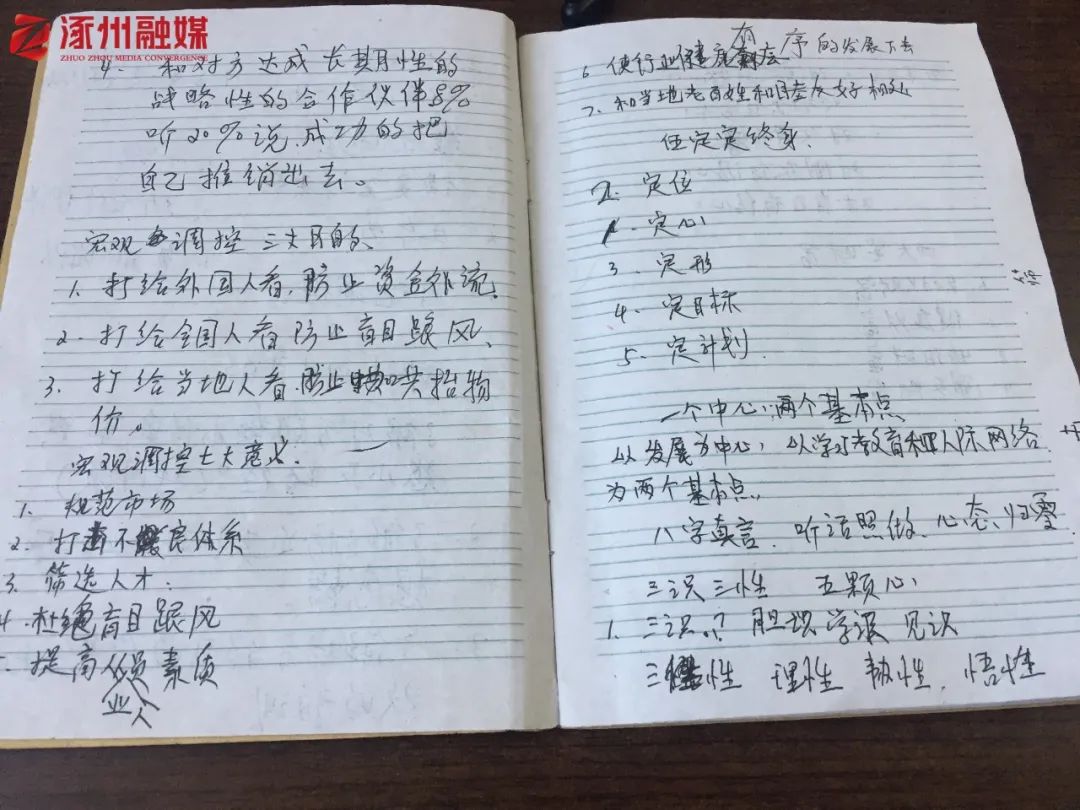 涿州融媒
ZHUO ZHOU MEDIA CONVERGENCE
4. 和对方达成长期性的
战略性的合作伙伴8%
听20%说,成功的把
自己推销出去。
宏观调控三大目的、
1、打给外国人看,防止资金外流,
2、打给全国人看防止盲目跟风、
3、打给当地人看,防止哄抬物
价。
宏观调控七大意义、
1、规范市场
2、打击不良体系
3、筛选人才.
4.杜绝盲目跟风
提高从业人员素质
6、使行业健康有序的发展下去
7、和当地老百姓和睦友好相处
五定定终身.
2、定位
1、定心
3、定形
4、定目标
5、定计划.
一个中心,两个基本点
以发展为中心,以学习教育和人际网络
为两个基本点,
八字真言.听话照做、心态归零
三识三性 五颗心
1、三识.? 胆识 学识 见识
三性 理性 韧性、悟性